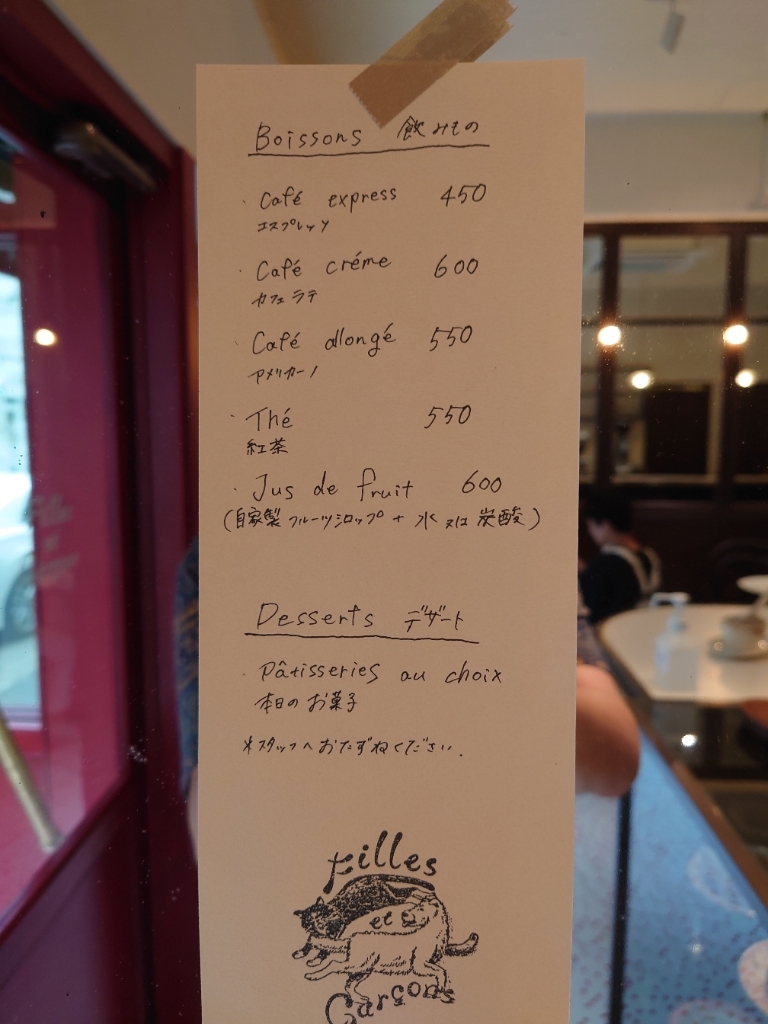 Boissons 飲みもの
・Café express 450
エスプレッソ
・Café créme 600
カフェラテ
・Café allongé 550
アメリカーノ
・Thé 550
紅茶
・Jus de fruit 600
(自家製フルーツシロップ + 水 又は 炭酸)
Desserts デザート
・Pâtisseries au choix
本日のお菓子
*スタッフへおたずねください.
Filles
et
Garçons